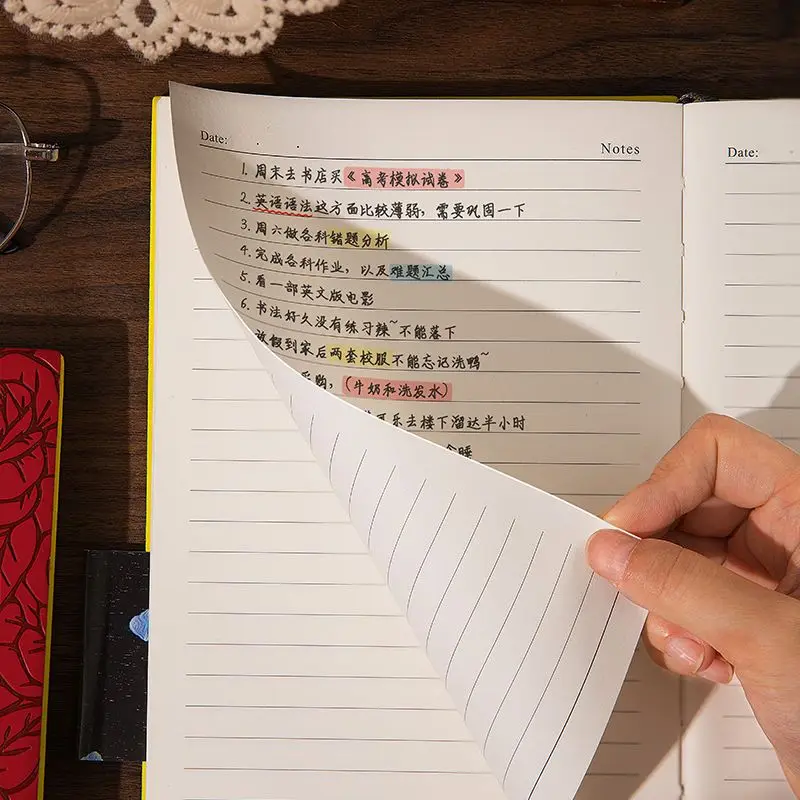 Date:
Notes
Date:
1. 周末去书店买《高考模拟试卷》
2. 英语语法这方面比较薄弱，需要巩固一下
3. 周六做各科错题分析
4. 完成各科作业，以及难题汇总
5. 看一部英文版电影
6. 书法好久没有练习辣~不能落下
放假到家后两套校服不能忘记洗鸭~
采购，（牛奶和洗发水）
可乐去楼下溜达半小时
睡